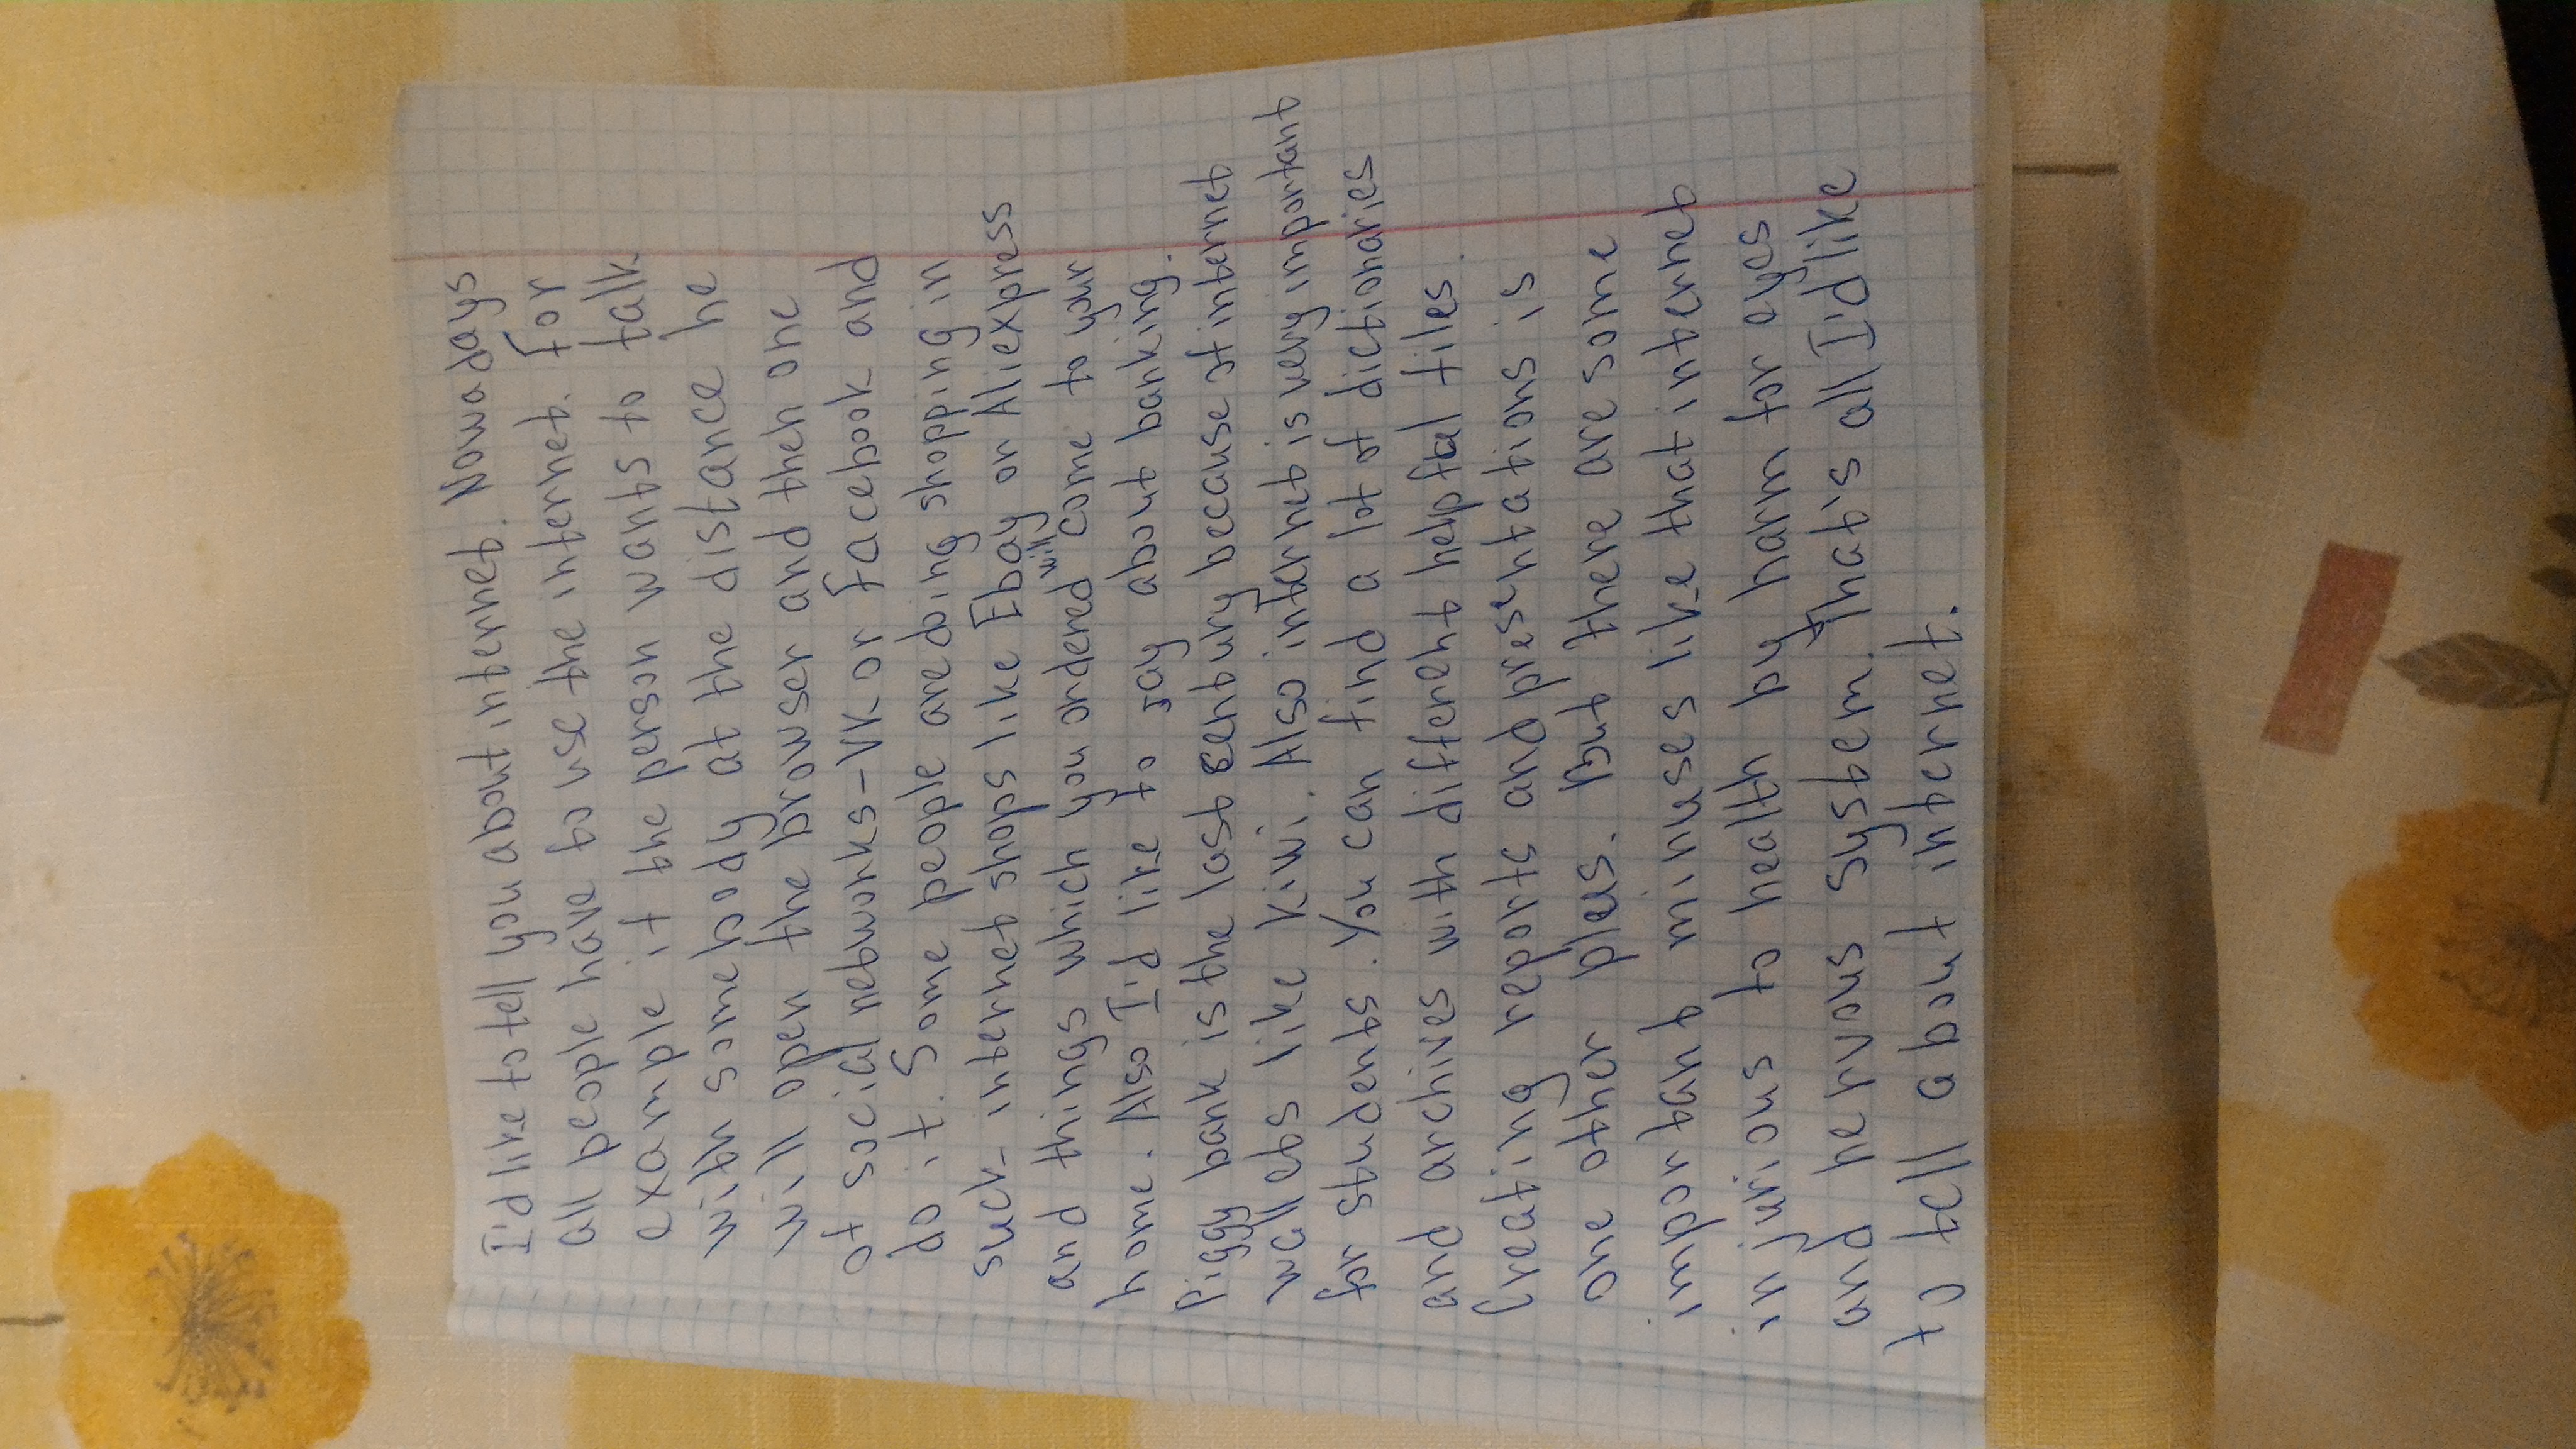 I'd like to tell you about internet. Nowadays
all people have to use the internet. For
example if the person wants to talk
with some body at the distance he
will open the browser and then one
of social networks-VK or Facebook and
do it. Some people are doing shopping in
such internet shops like Ebay or Aliexpress
and things which you ordered will come to your
home. Also I'd like to say about banking.
Piggy bank is the last century because of internet
wallets like Kiwi. Also internet is very important
for students. You can find a lot of dictionaries
and archives with different helpful files.
Creating reports and presentations is
one other plus. But there are some
important minuses like that internet
injurious to health by harm for eyes
and nervous system. That's all I'd like
to tell about internet.